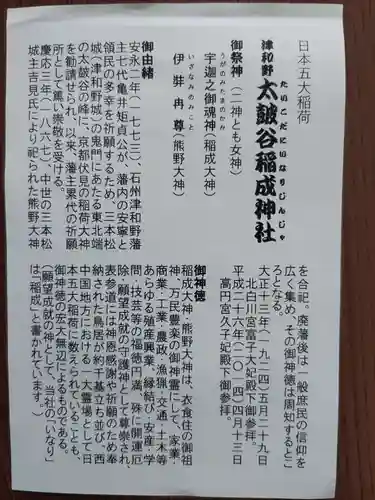 日本五大稲荷
津和野 太皷谷稲成神社
たいこだにいなりじんじゃ
御祭神(二神とも女神)
うがのみたまのかみ
宇迦之御魂神(稲成大神)
いざなみのみこと
伊弉冉尊(熊野大神)
御由緒
安永二年(一七七三)、石州津和野藩
主七代亀井矩貞公が、藩内の安寧と
領民の多幸を祈願するため、三本松
城(津和野城)の鬼門にあたる東北端
の太皷谷の峰に、京都伏見の稲荷大神
を勧請せられ、以来、藩主累代の祈願
所として篤い崇敬を受ける。
慶応三年(一八六七)中世の三本松
城主吉見氏により祀られた熊野大神
を合祀。廃藩後は一般庶民の信仰を
広く集め、その御神徳は周知するとこ
ろとなる。
大正十三年(一九二四)五月二十九日
北白川宮富子大妃殿下御参拝。
平成二十六年(二〇一四)四月十三日
高円宮久子妃殿下御参拝。
御神徳
稲成大神・熊野大神は、衣食住の御祖
神、万民豊楽の御神霊にして、家業・
商業・工業・農政・漁猟・交通・土木等
あらゆる殖産興業、縁結び・安産・学
問・技芸等の福徳円満、殊に開運厄
除・願望成就の守護神として尊崇され、
表参道には神恩感謝や祈願のため奉
納された鳥居が約千基立ち並び、西
中国地方における一大霊場として日
本五大稲荷に数えられていることも、
御神徳の宏大無辺によるものである。
(願望成就の神として、当社の「いなり」
は「稲成」と書かれています。)